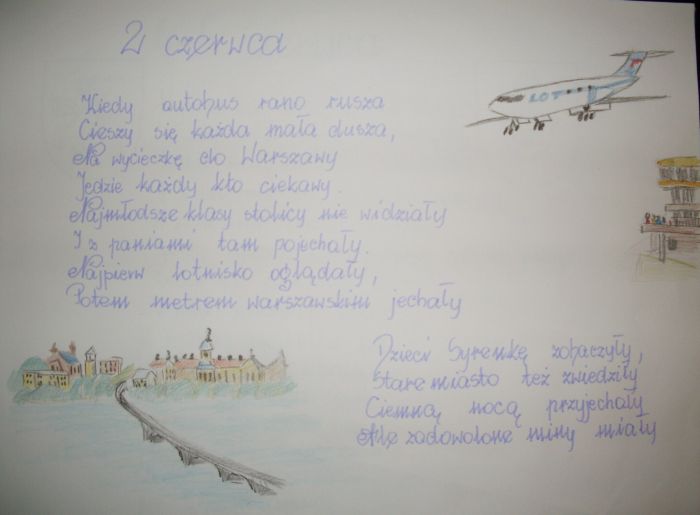 2 czerwca
LOT
Kiedy autobus rano rusza
Cieszy się każda mała dusza,
Na wycieczkę do Warszawy
Jedzie każdy kto ciekawy.
Najmłodsze klasy stolicy nie widziały
I z paniami tam pojechały.
Najpierw lotnisko oglądały,
Potem metrem warszawskim jechały
Dzieci Syrenkę zobaczyły,
Stare miasto też zwiedziły
Ciemną nocą przyjechały
Ale zadowolone miny miały